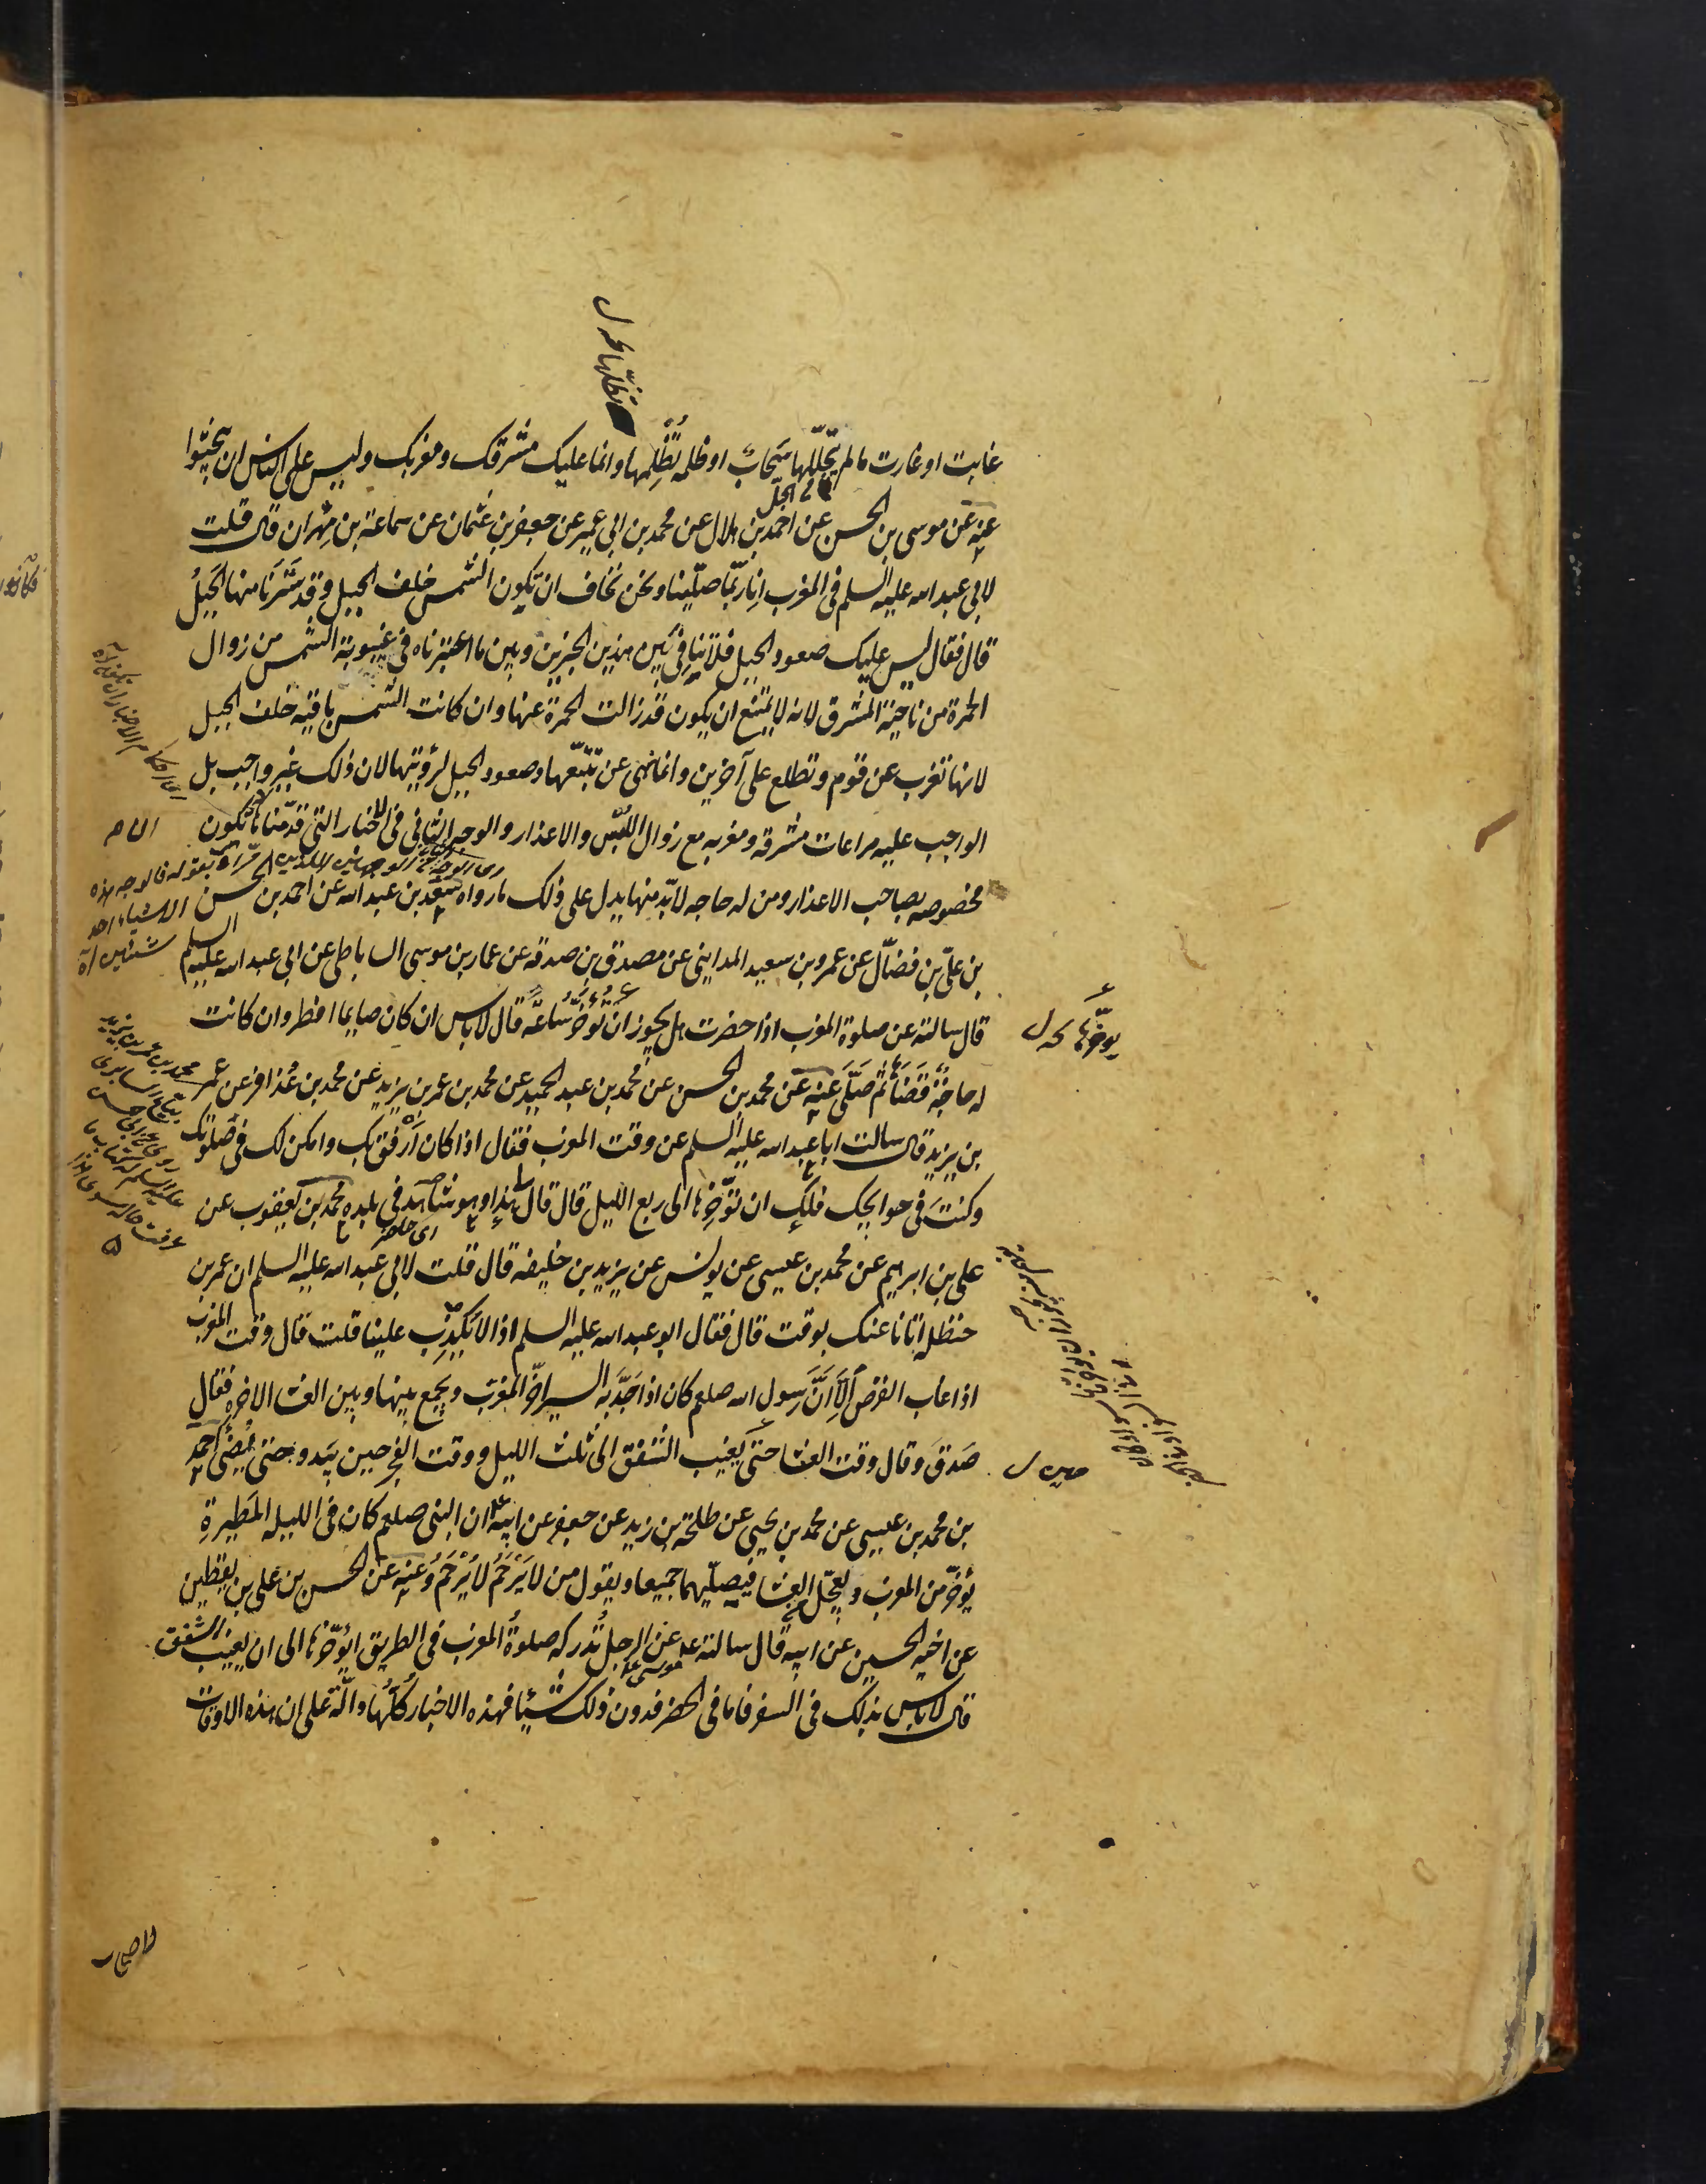 غابت او غارت مالم يتجلّلها سَحابٌ او ظلمه تُظْلِمها وانما عليك مشرقك ومغربك وليس على الناس ان يبحثوا
عنه عن موسى بن الحسن عن احمد بن هلال عن محمد بن ابي عمير عن جعفر بن عثمان عن سماعة بن مِهْران قال قلت
لابي عبد الله عليه السلم في المغرب اِنّا ربّما صلّينا ونحن نخاف ان تكون الشمس خلف الجبل وقد سَتَرَنا منها الجَبلُ
قال فقال ليس عليك صعود الجبل فلا تنافي بَين هذين الخبرين وبين ما اعتبرناه في غيبوبة الشمس من زوال
الحمرة من ناحية المشرق لانه لا يمتنع ان يكون قد زالت الحمرة عنها وان كانت الشمس باقيه خلف الجبل
لانها تغرب عن قوم وتطلع على آخرين وانما نهى عن تتبّعها وصعود الجبل لرؤيتها لان ذلك غير واجب بل
الواجب عليه مراعات مشرقه ومغربه مع زوال اللَّبْس والاعذار والوجه الثاني في الاخبار التي قدّمناها ان تكون
مخصوصه بصاحب الاعذار ومن له حاجه لابدّ منها يدل على ذلك ما رواه سَعْد بن عبد الله عن احمد بن الحسن
بن علىّ بن فضّال عن عمرو بن سعيد المدايني عن مصدق بن صدقه عن عمار بن موسى الساباطي عن ابي عبد الله عليه السلم
قال سالته عن صلوة المغرب اذا حضرت هل يجوز ان تُؤخّر سَاعَةً قال لا باس ان كان صايما افطر وان كانت
له حاجَةٌ قَضَاها ثم صَلّى عنه عن محمد بن الحسن عن محمد بن عبد الحميد عن محمد بن عمر بن يزيد عن محمد بن عُذافر عن عمر
بن يزيد قال سالت ابا عبد الله عليه السلم عن وقت المغرب فقال اذا كان اَرفق بك وامكن لك في صَلوتك
وكنتَ في حوايجك فلك ان تؤخّرها الى ربع الليل قال قال لى هذا وهو شاهد في بلده محمد بن يعقوب عن
على بن ابرهيم عن محمد بن عيسى عن يونس عن يزيد بن خليفه قال قلت لابي عبد الله عليه السلم ان عمر بن
حنظله اتانا عنك بوقت قال فقال ابو عبد الله عليه السلم اذا لا يَكْذِب علينا قلت قال وقت المغرب
اذا غاب القرص اِلّا اَنّ رَسول الله صلعم كان اذا جَدّ به السير اخّر المغرب ويجمع بينها وبين العشا الاخره فقال
صَدقَ وقال وقت العشا حتى يَغيب الشفق الى ثلث الليل ووقت الفجر حين يَبدو حتى يُضيُ احمد
بن محمد بن عيسى عن محمد بن يحيى عن طلحة بن زيد عن جعفر عن ابيه ان النبى صلعم كان في الليله المَطيرةِ
يُؤخّر من المغرب ويعجّل العشا فيصلّيهما جميعا ويقول من لا يَرْحَمُ لا يُرْحَمُ وعنه عن الحسن بن على بن يقطين
عن اخيه الحسين عن ابيه قال سالته عن الرجل تُدركه صلوةُ المغرب في الطريق ايؤخّرها الى ان يغيب الشفق
قال لا باس بذلك في السفر فاما في الحضر فدون ذلك شيئا فهذه الاخبار كلّها دالّة على ان هذه الاوقات
يوخّرها خ ل
اى حاضر
حين ل